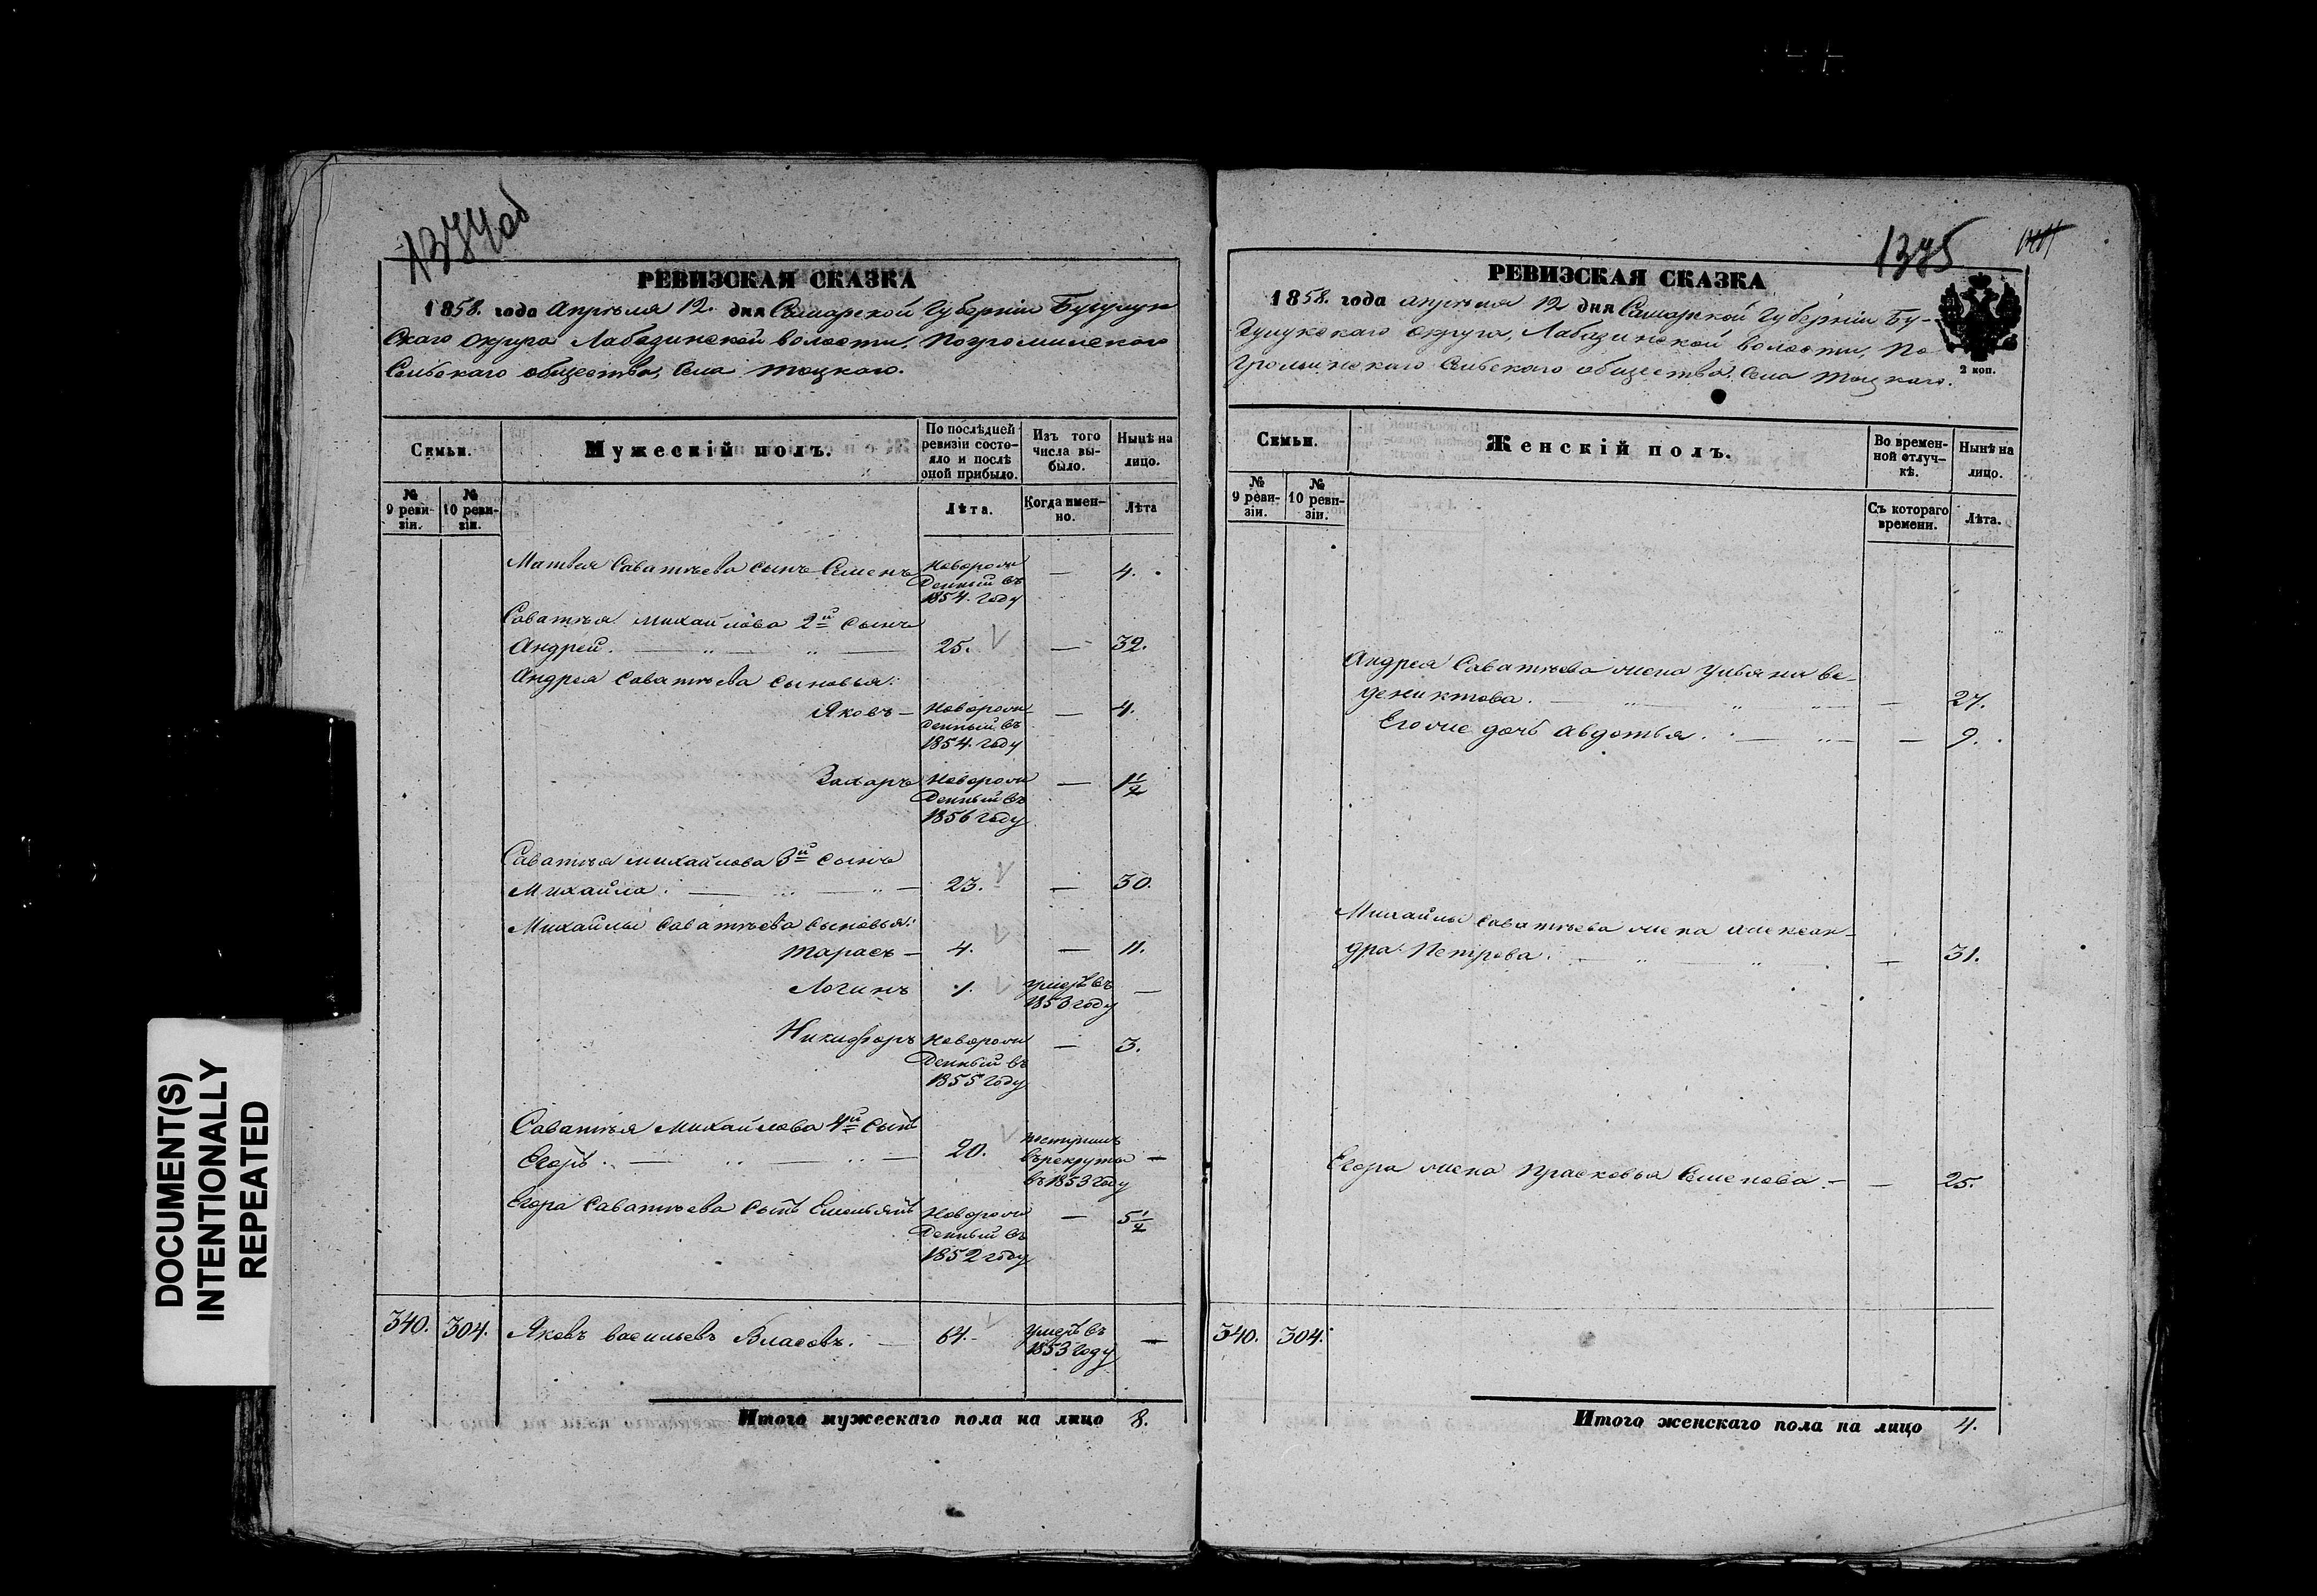 1374об
РЕВИЗСКАЯ СКАЗКА
1858. года Апрѣля 12. дня Самарской Губерніи Бузулук
Скаго округа Лабазинской волости, Погроминскаго
Сельскаго общества, Села Тоцкаго.
Семьи.
Мужескій полъ.
По послѣдней
ревизіи состо-
яло и послѣ
оной прибыло.
Изъ того
числа вы-
было.
Нынѣ на
лицо.
№
9 реви-
зіи.
№
10 реви-
зіи.
Лѣта.
Когда имен-
но.
Лѣта
Матвея Саватѣева сынъ Семенъ Новорож
денный въ — 4.
1854. году
Саватѣя Михайлова 2й сынъ
Андрей. — 25. — 32.
Андрея Саватѣева сыновья:
Яковъ — Новорож — 4.
денный въ
1854. году
Захаръ Новорож — 1 1/2
денный въ
1856 году
Саватѣя Михайлова 3й сынъ
Михайла. — 23. — 30.
Михайлы Саватѣева сыновья:
Тарасъ — 4. — 11.
Логинъ 1. умеръ въ —
1853 году
Никифоръ Новорож — 3.
денный въ
1855 году
Саватѣя Михайлова 4й сынъ
Егоръ. — 20. поступилъ
въ рекруты —
въ 1853 году
Егора Саватѣева сынъ Емельянъ Новорож — 5 1/2
денный въ
1852 году
340. 304. Яковъ Васильевъ Власовъ. — 64. умеръ въ —
1853 году
Итого мужескаго пола на лицо 8.
1375
РЕВИЗСКАЯ СКАЗКА
1858. года апрѣля 12 дня Самарской Губерніи Бу-
зулукскаго округа, Лабазинской волости, По
громинскаго Сельскаго общества, Села Тоцкаго.
2 коп.
Семьи.
Женскій полъ.
Во времен-
ной отлуч-
кѣ.
Нынѣ на
лицо.
№
9 реви-
зіи.
№
10 реви-
зіи.
Съ котораго
времени.
Лѣта.
Андрея Саватѣева жена Ульяна Ве-
дениктова. — — 27.
Его же дочь Авдотья. — — 9.
Михайлы Саватѣева жена Алексан-
дра Петрова. — — 31.
Егора жена Прасковья Семенова. — — 25.
340. 304.
Итого женскаго пола на лицо 4.
DOCUMENT(S)
INTENTIONALLY
REPEATED